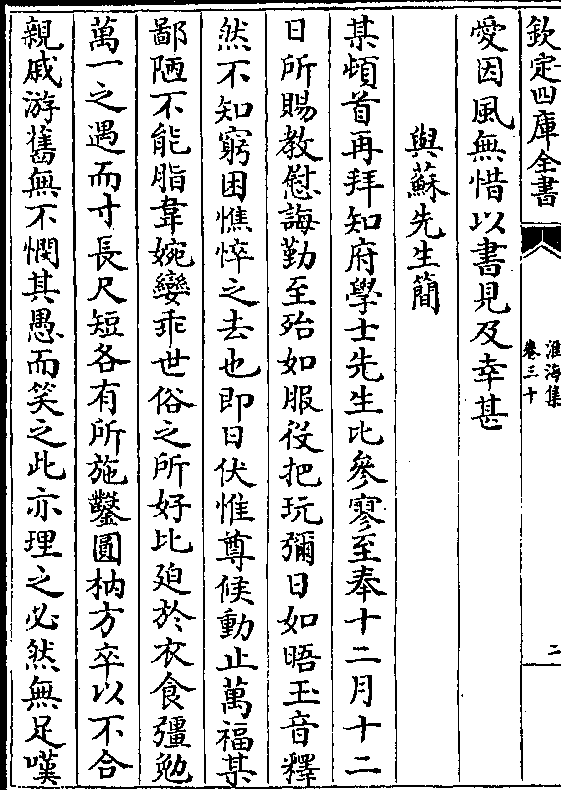 欽定四庫全書
淮海集
卷三十
二
愛因風無惜以書見及幸甚
與蘇先生簡
某頓首再拜知府學士先生比參寥至奉十二月十二
日所賜教慰誨勤至殆如服役把玩彌日如晤玉音釋
然不知窮困憔悴之去也即日伏惟尊候動止萬福某
鄙陋不能脂韋婉孌乖世俗之所好比廹於衣食彊勉
萬一之遇而寸長尺短各有所施鑿圓枘方卒以不合
親戚游舊無不憫其愚而笑之此亦理之必然無足嘆